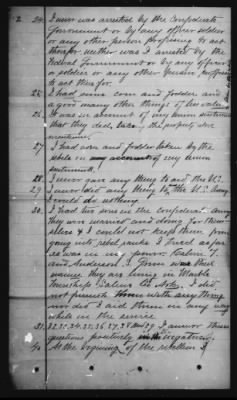 2
24. I never was arrested by the Confederate
Government or by any officer soldier
or any other person professing to act
therefor neither was I arrested by the
Federal Government or by any officer
or soldier or any other person professing
to act therefor.
25. I had some corn and fodder and a
good many other things of less value
26. It was on account of my Union sentiments
that they did take the property above
mentioned.
27. I had corn and fodder taken by the
rebels on my Union
sentiments.
28. I never gave any thing to aid the U.S.
29. I never did any thing for the U.S. Army
I could do nothing
30. I had two sons in the Confederate army
they were married and doing for them
selves & I could not keep them from
going into rebel ranks I tried as far
as was in my power. Calvin T.
and Anderson J. were their
names they are living in Marble
township Saline Co Ark, I did
not furnish them with any thing
nor did I aid them in any way
while in the service
31, 32, 33, 34, 35, 36, 37, 38 and 39 I answer these
questions positively in the negative.
40. At the begining of the rebellion I